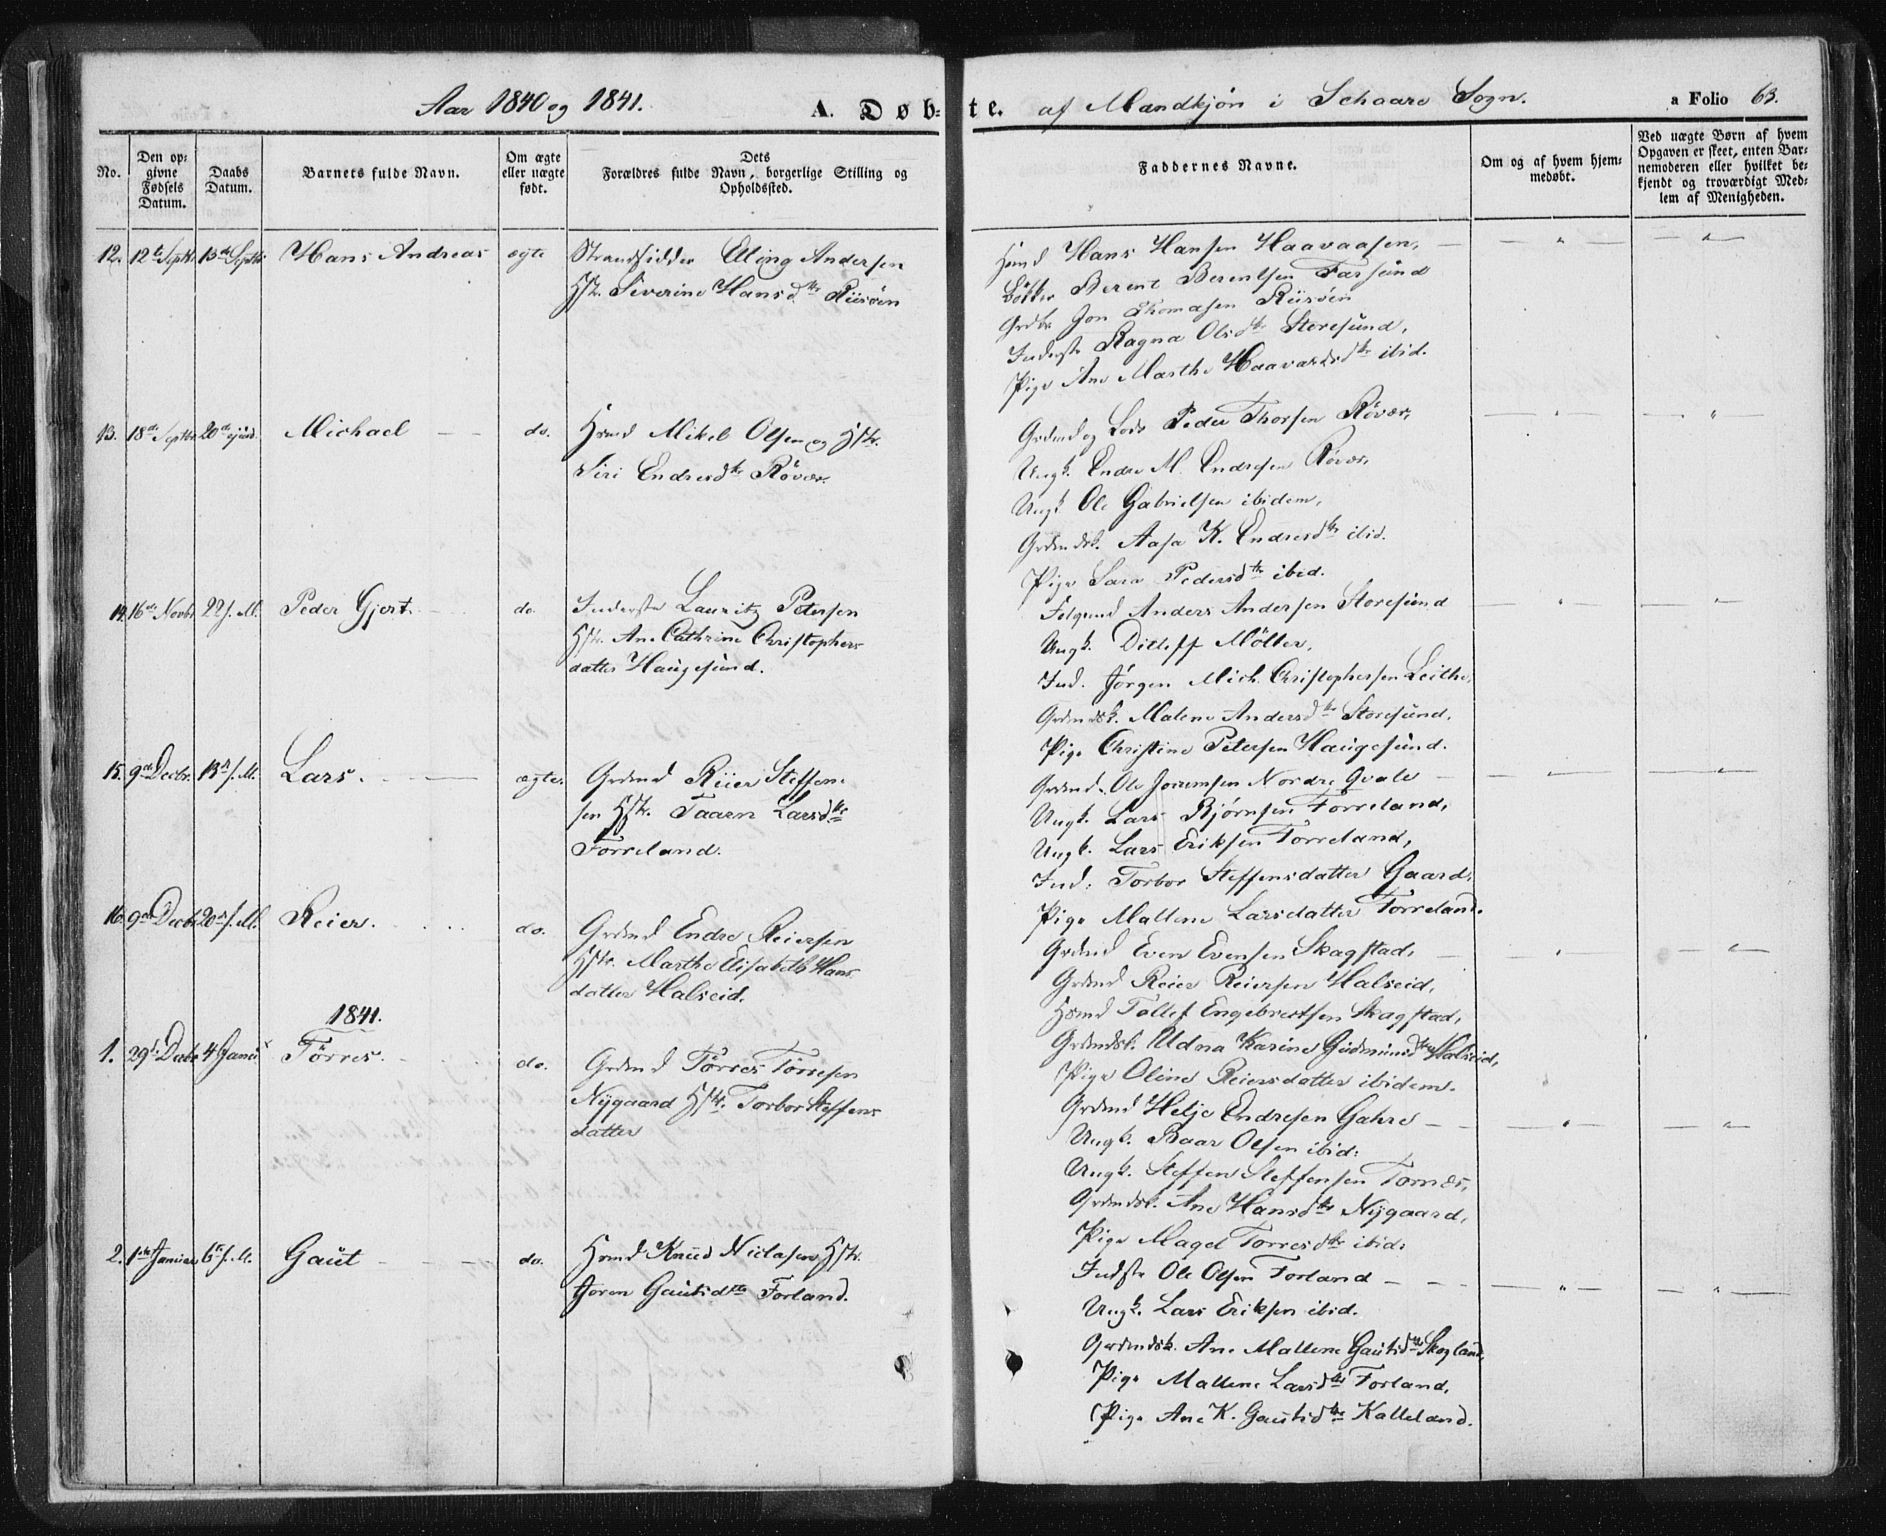 Aar 1840 og 1841.
A. Døb-
te. af Mandkjøn i Schaare Sogn.
a Folio 63.
No.
Den op-
givne
Fødsels
Datum.
Daabs
Datum.
Barnets fulde Navn.
Om ægte
eller uægte
født.
Dets
Forældres fulde Navn, borgerlige Stilling og
Opholdssted.
Faddernes Navne.
Om og af hvem hjem-
medøbt.
Ved uægte Børn af hvem
Opgaven er skeet, enten Bar-
nemoderen eller hvilket be-
kjendt og troværdigt Med-
lem af Menigheden.
12. 12te Septbr 13de Septbr Hans Andreas ægte
Strandsidder Eling Andersen
Hstr. Severine Hansdtr Riisøen
Huusmd Hans Hansen Haavaasen,
Bøkker Berent Berentsen Farsund
Grdbr Jon Thomasen Riisøen
Inderste Ragna Olsdtr Storesund,
Pige Ane Marthe Haavardsdtr ibid.
13. 18de Septbr 20de ejusd. Michael do.
Hsmd Mikel Olsen og Hstr.
Siri Endresdtr Røvær.
Grdmd og Lods Peder Thorsen Røvær,
Ungk. Endre M. Endresen Røvær,
Ungk Ole Gabrielsen ibidem,
Grdmdsk. Aasa K. Endresdtr ibid.
Pige Sara Pedersdtr ibid.
14. 16de Novbr 22 s. M. Peder Gjert do.
Inderste Lauritz Petersen
Hstr. Ane Cathrine Christophers
datter Haugesund.
Folgemd Anders Andersen Storesund
Ungk. Ditleff Møller,
Ind. Jørgen Mich. Christophersen Leithe,
Grdmdsk. Malene Andersdtr Storesund,
Pige Christine Petersen Haugesund.
15. 9de Decbr. 13de s. M. Lars. ægte.
Grdmd Reier Steffen-
sen Hstr. Taarn Larsdtr
Førreland.
Grdmd. Ole Joremsen Nordre Qvale
Ungk. Lars Bjørnsen Førreland,
Ungk. Lars Eriksen Førreland,
Ind. Torbor Steffensdatter Gaard,
Pige Mallene Larsdatter Førreland.
16. 9de Decbr 20de s. M. Reier. do.
Grdmd Endre Reiersen
Hstr. Marthe Elisabeth Hans
datter Halseid.
Grdmd Even Evensen Skagstad,
Grdmd Reier Reiersen Halseid,
Hsmd Tollef Engebretsen Skagstad,
Grdmdsk. Udna Karine Gudmundsdtr Halseid,
Pige Oline Reiersdatter ibidem.
1841.
1. 29de Decbr 4 Januar Tørres. do.
Grdmd Tørres Tørresen
Nygaard Hstr. Torbor Steffens
datter
Grdmd Helje Endresen Gahre
Ungk. Baar Olsen ibid.
Ungk. Steffen Steffensen Tornes,
Grdmdsk. Ane Hansdtr Nygaard,
Pige Magel Torresdtr ibid.
2. 1ste Januar 6te s. M. Gaut do.
Hsmd Knud Niclasen Hstr.
Joren Gautsdtr Forland.
Indste Ole Olsen Forland
Ungk. Lars Eriksen ibid.
Grdmdsk. Ane Mallene Gautsdtr Skogland,
Pige Mallene Larsdtr Forland,
Pige Ane K. Gautsdtr Kalleland.